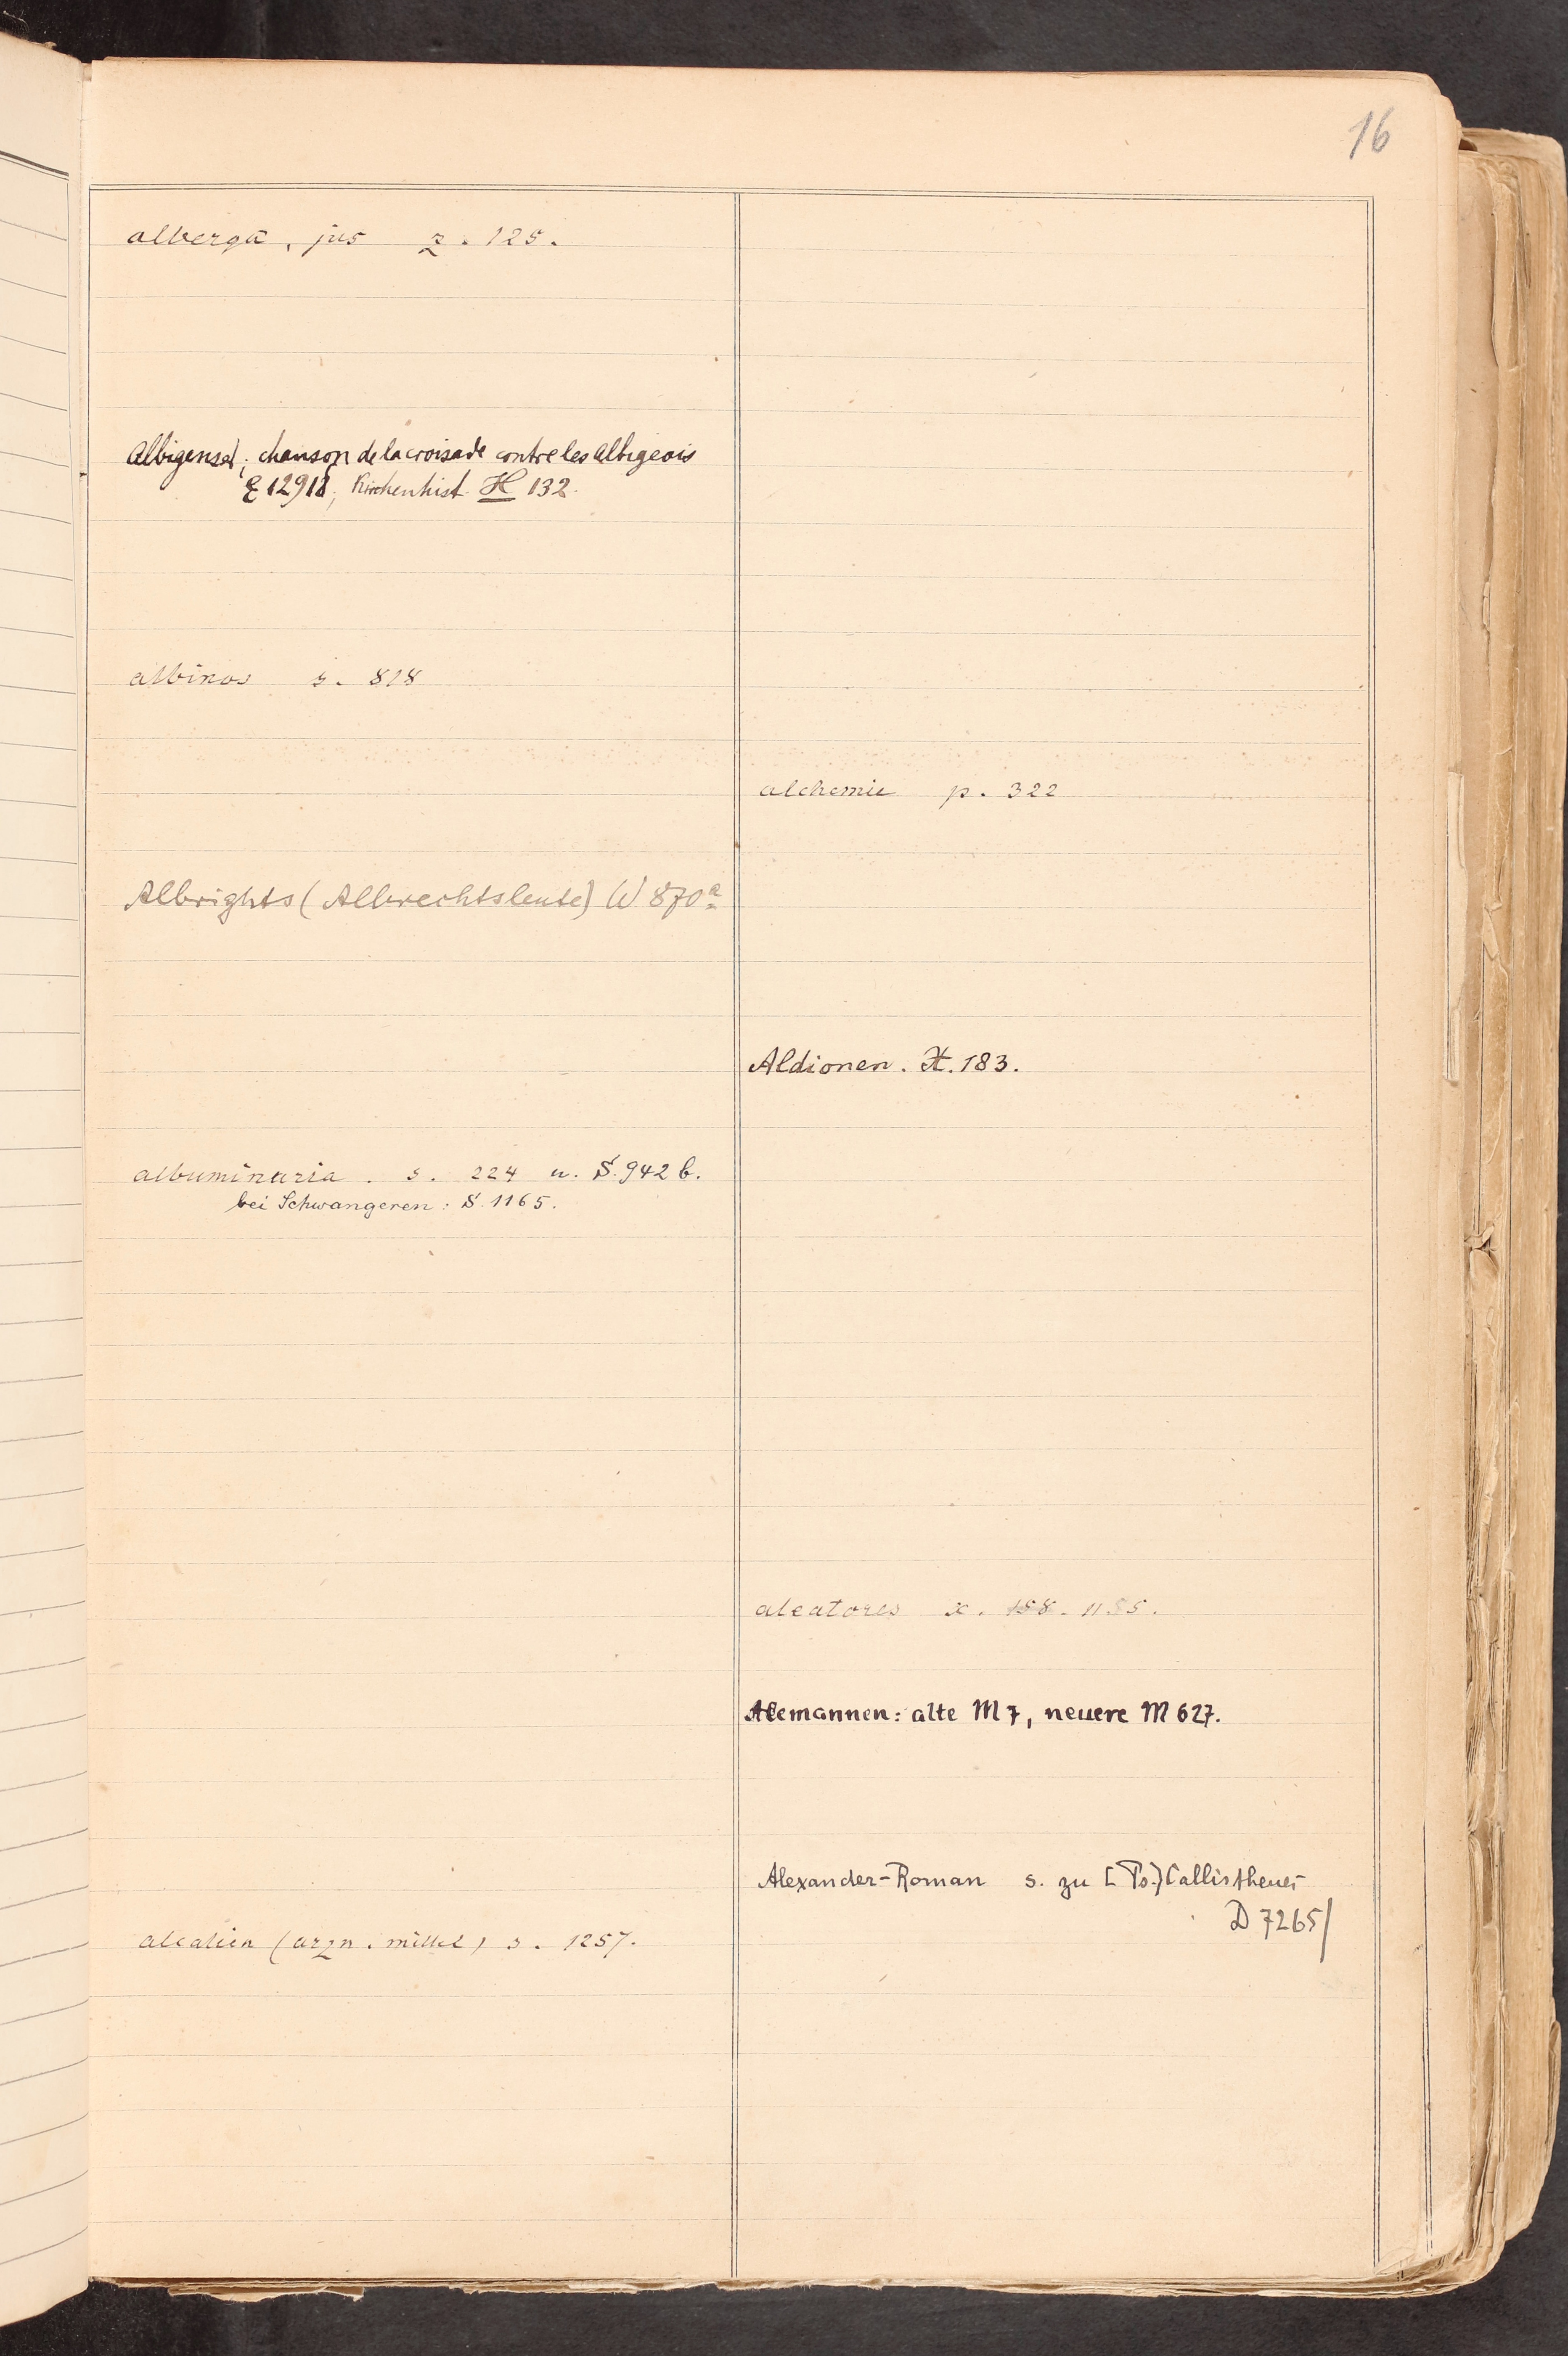 16
alberga, jus z. 125.
Albigenser; chanson de la croisade contre les Albigeois
E 12918; Kirchenhist. H 132.
albinos s. 818
Albrights (Albrechtsleute) W 870a
albuminaria. s. 224 u. S. 942 b.
bei Schwangeren: S. 1165.
alcalien (arzn. mittel) s. 1257.
alchemie p. 322
Aldionen. H. 183.
aleatores x. 158. 1155.
Alemannen: alte M 7, neuere M 627.
Alexander-Roman s. zu [Ps.] Callisthenes
D 7265/